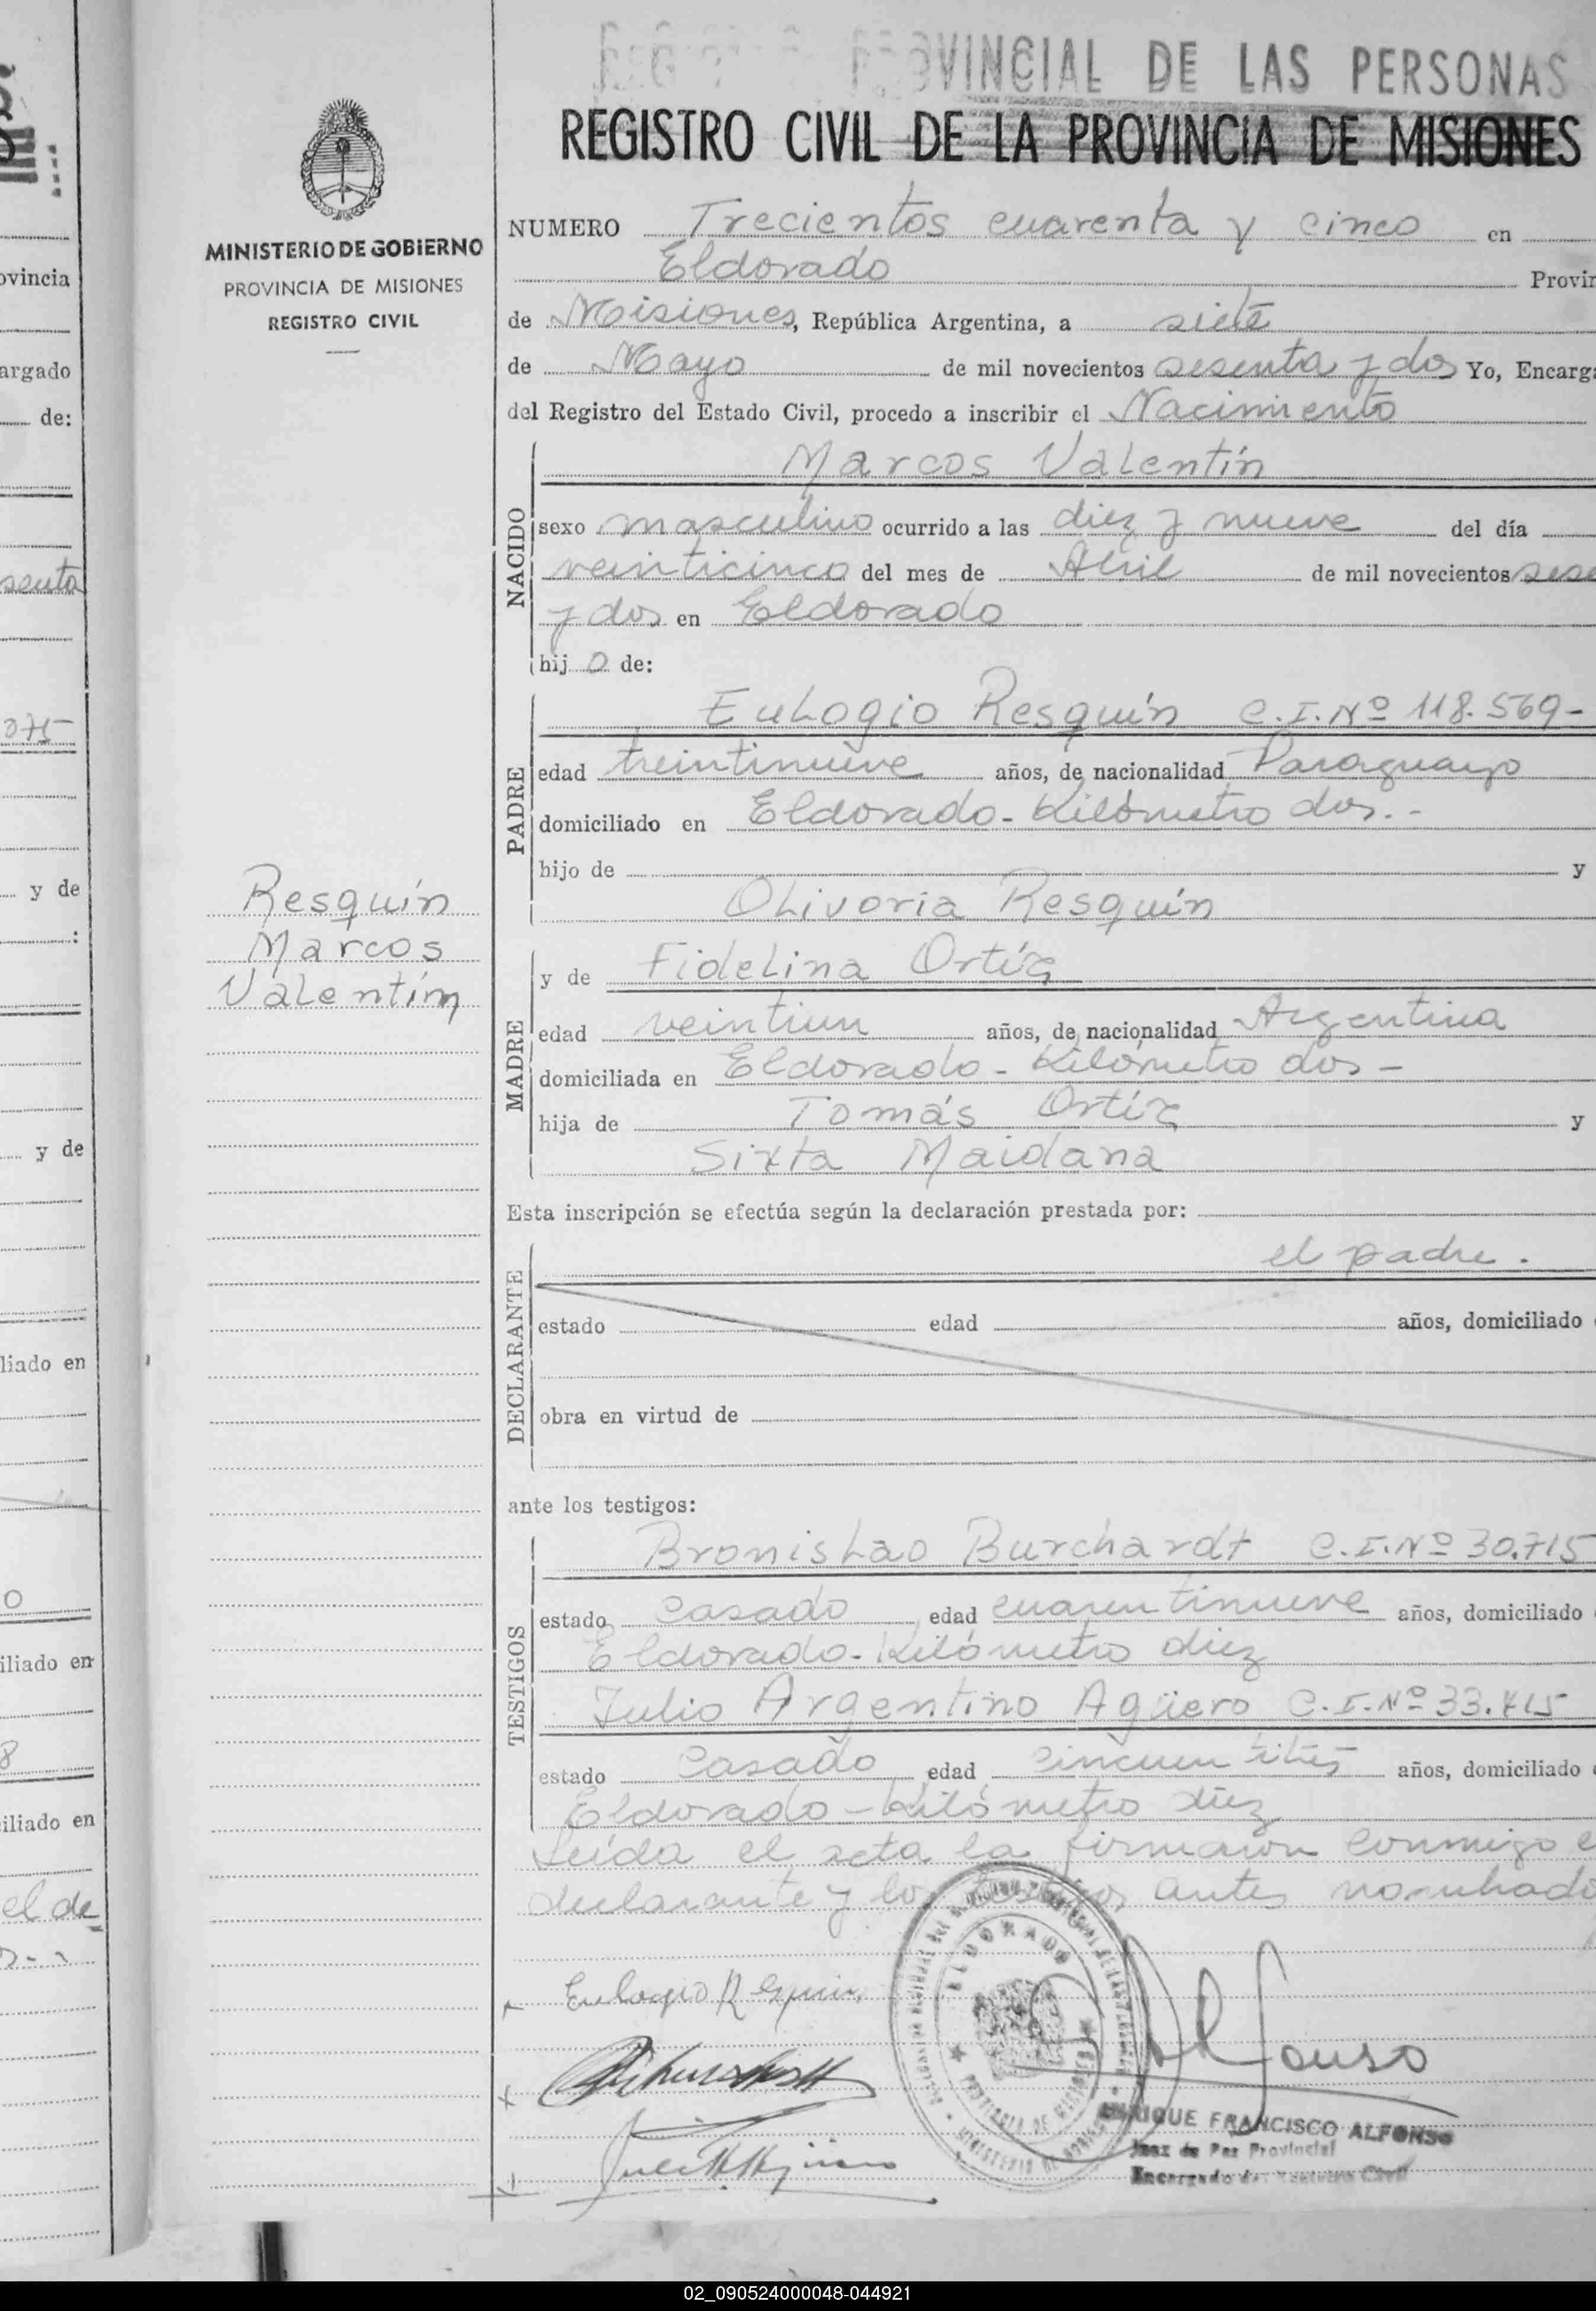 PROVINCIAL DE LAS PERSONAS
REGISTRO CIVIL DE LA PROVINCIA DE MISIONES
MINISTERIO DE GOBIERNO
PROVINCIA DE MISIONES
REGISTRO CIVIL
NUMERO Trecientos cuarenta y cinco en
Eldorado Provin
de Misiones, República Argentina, a siete
de Mayo de mil novecientos sesenta y dos Yo, Encarga
del Registro del Estado Civil, procedo a inscribir el Nacimiento
NACIDO
Marcos Valentín
sexo masculino ocurrido a las diez y nueve del día
veinticinco del mes de Abril de mil novecientos sese
y dos en Eldorado
hij o de:
PADRE
Eulogio Resquín C.I.Nº 118.569-
edad treintinueve años, de nacionalidad Paraguayo
domiciliado en Eldorado - Kilómetro dos.-
hijo de y
Olivoria Resquín
Resquín
Marcos
Valentím
MADRE
y de Fidelina Ortíz
edad veintiun años, de nacionalidad Argentina
domiciliada en Eldorado - Kilómetro dos -
hija de Tomás Ortíz y
Sixta Maidana
Esta inscripción se efectúa según la declaración prestada por:
DECLARANTE
el padre.
estado edad años, domiciliado
obra en virtud de
ante los testigos:
TESTIGOS
Bronislao Burchardt C.I.Nº 30.715
estado casado edad cuarentinueve años, domiciliado
Eldorado - Kilómetro diez
Julio Argentino Agüero C.I.Nº 33.415
estado casado edad años, domiciliado
Eldorado - Kilómetro diez
Leída el acta la firmaron conmigo e
declarante y los testigos antes nombrado
Eulogio Resquin
Alfonso
ELDORADO
PROVINCIA DE MISIONES
ENRIQUE FRANCISCO ALFONSO
Juez de Paz Provincial
Encargado del Registro Civil
ovincia
argado
de:
senta
075
y de
:
y de
liado en
o
iliado en
8
iliado en
el de
02_090524000048-044921